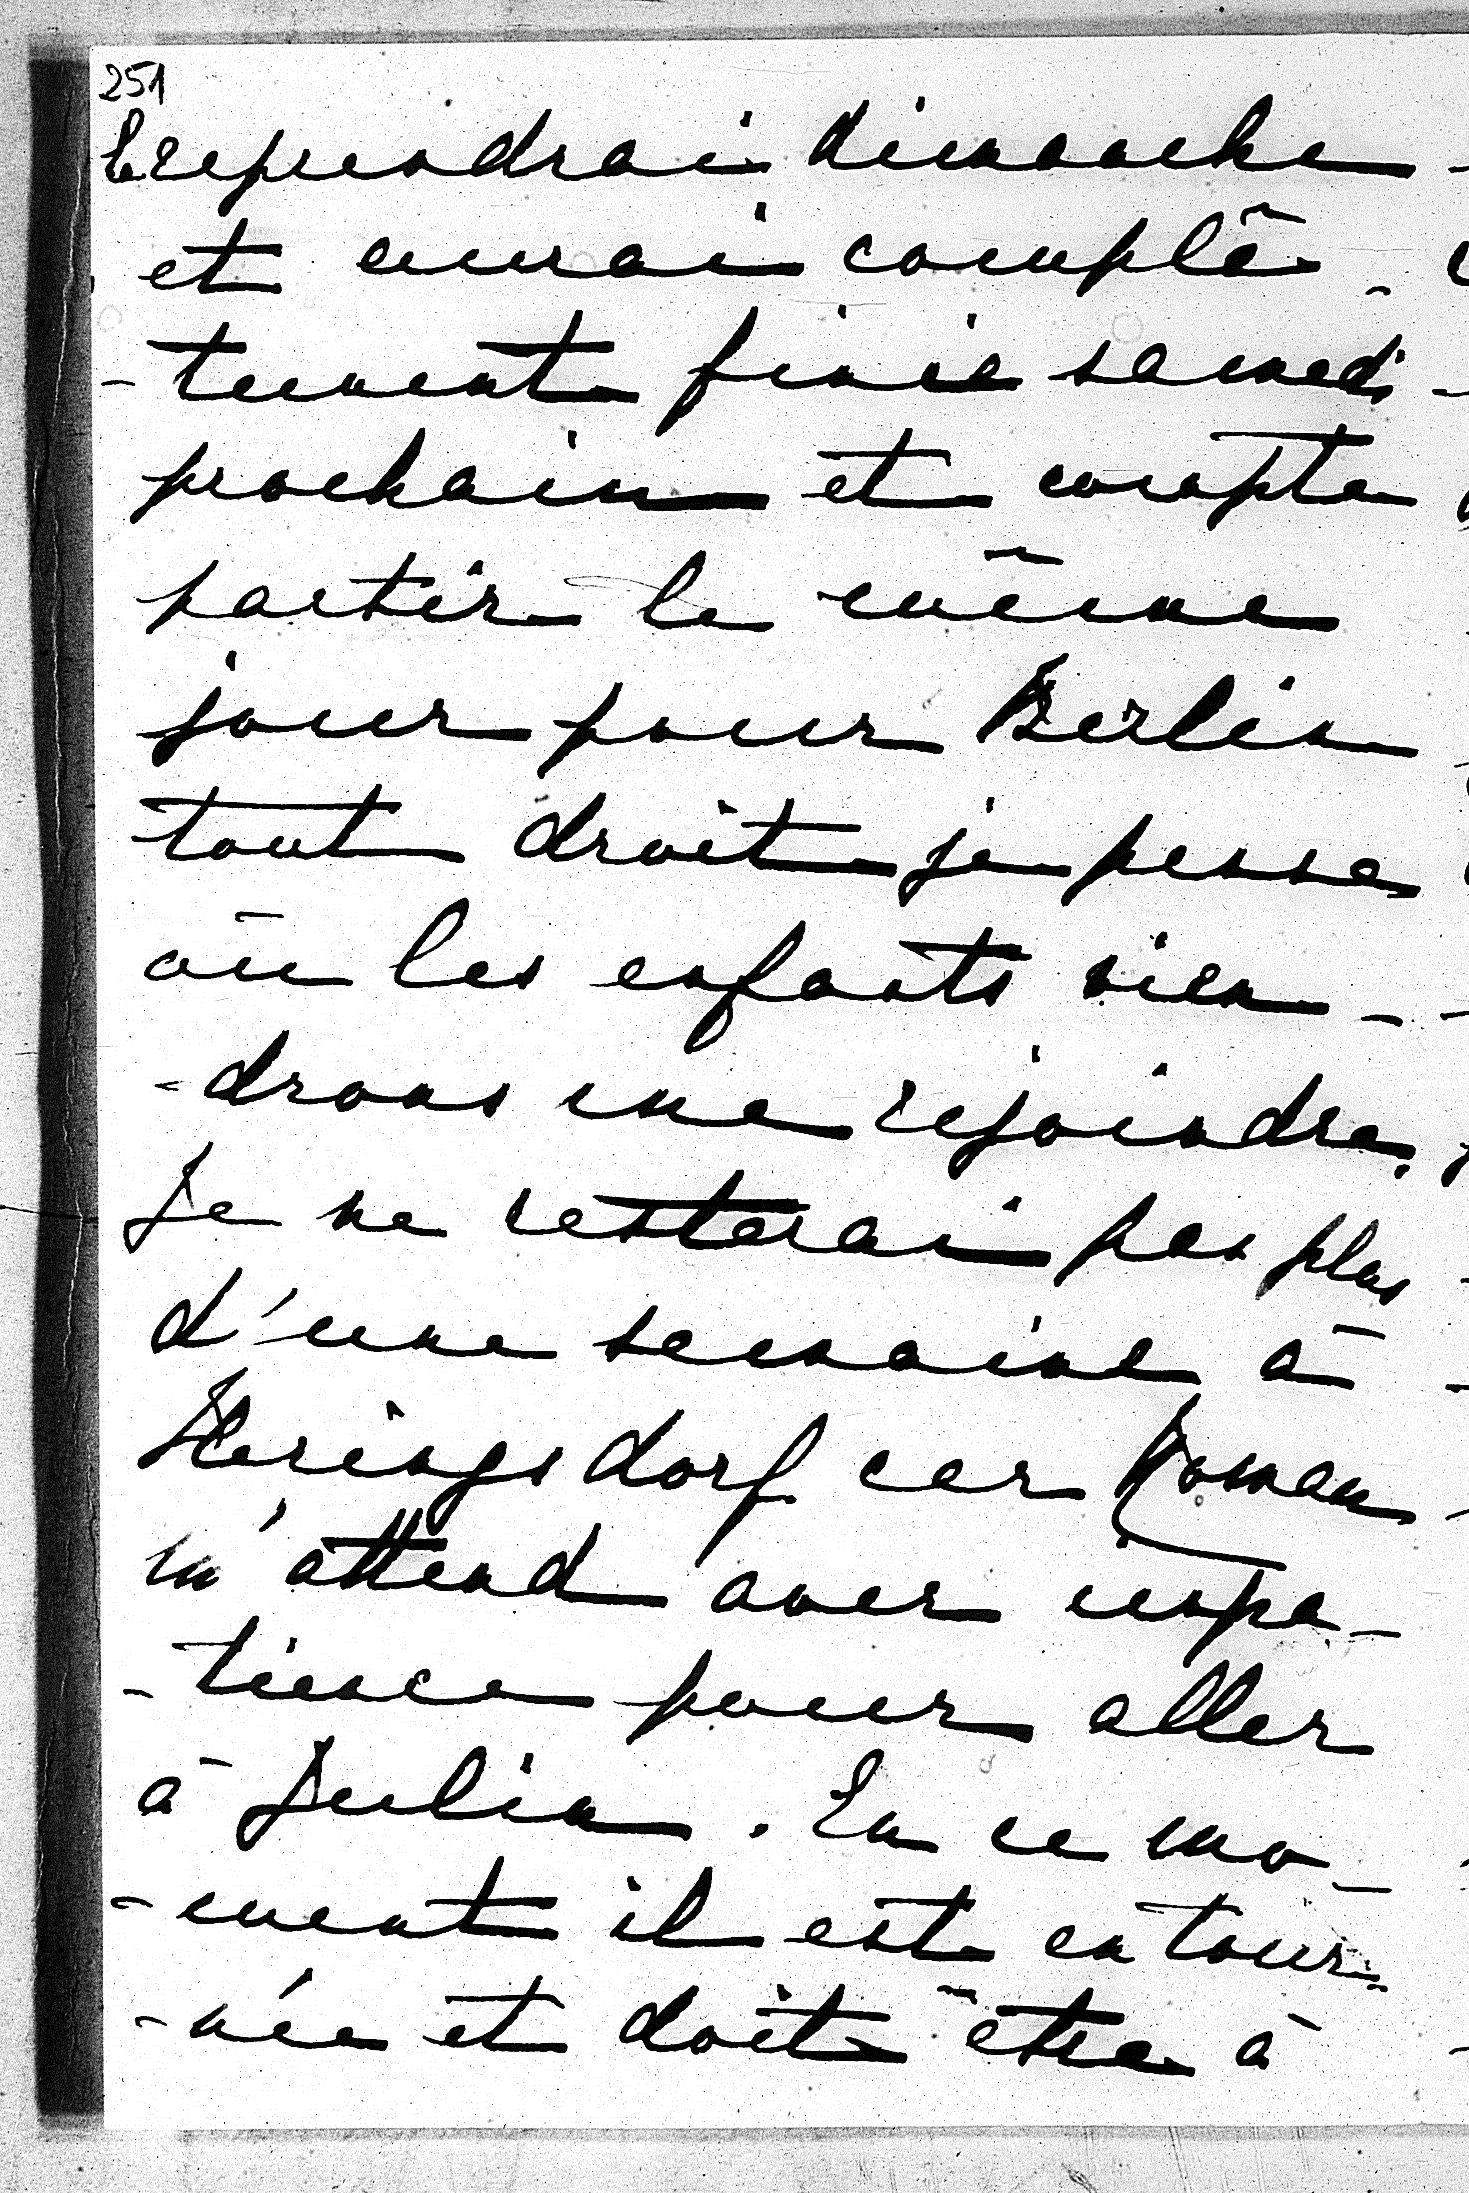 251
reprendrai dimanche
et aurai complè-
-tement finie samedi
prochain et compte
partir le même
jour pour Berlin
tout droit je pense
où les enfants vien-
-drons me rejoindre,
Je ne resterai pas plus
d'une semaine à
Heringsdorf car Roman
m'attend avec impa-
-tience pour aller
à Julin. En ce mo-
-ment il est en tour-
-née et doit être à